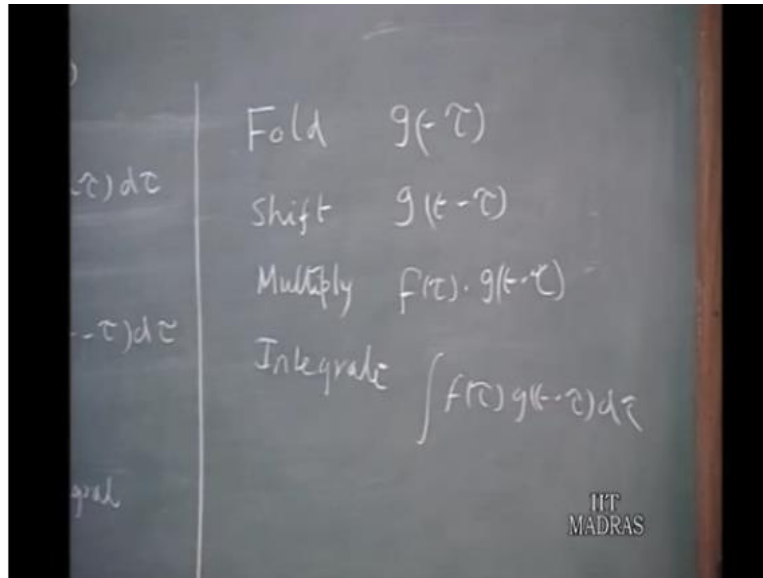 )
-τ)dτ
- τ)dτ
gral
Fold g(-τ)
Shift g(t-τ)
Multiply f(τ)·g(t-τ)
Integrate ∫f(τ)g(t-τ)dτ
IIT
MADRAS